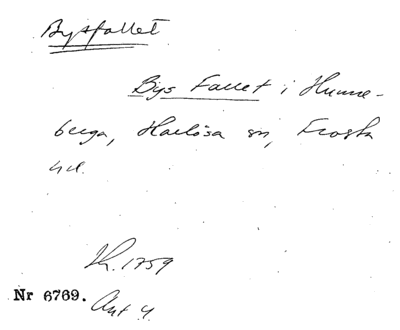 Bysfallet
Bys Fallet i Hunne-
berga, Harlösa sn, Frosta
hd.
Lh. 1759
Nr 6769. Akt 4